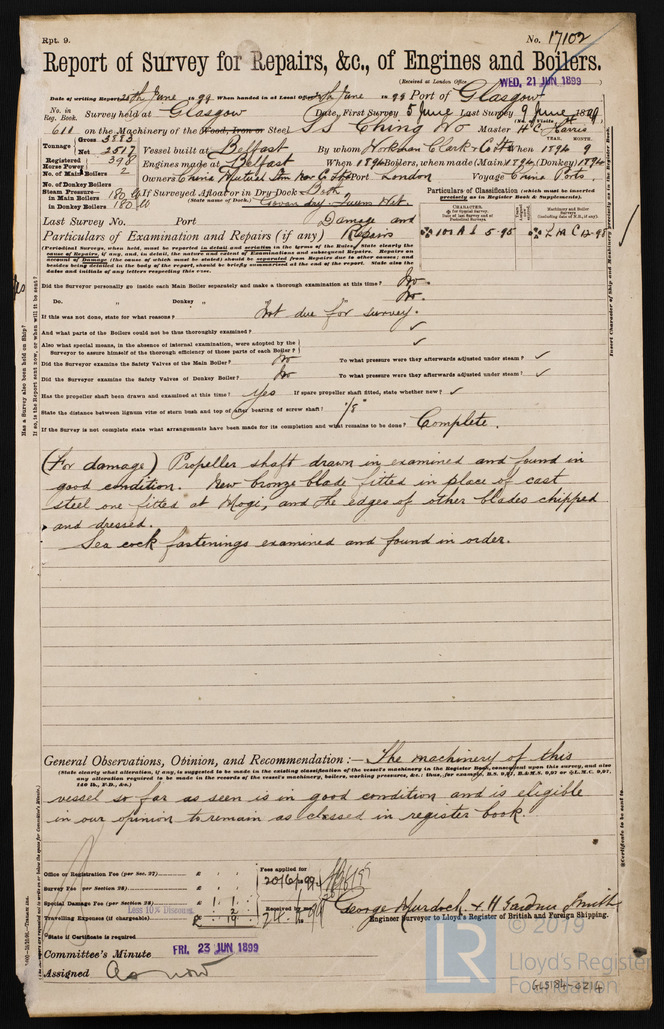 Rpt. 9.
No. 17102
Report of Survey for Repairs, &c., of Engines and Boilers.
(Received at London Office WED. 21 JUN 1899
Date of writing Report 20th June 1899 When handed in at Local Office June 1899 Port of Glasgow
No. in Reg. Book. Survey held at Glasgow Date, First Survey 5 June Last Survey 9 June 1899
611 on the Machinery of the Wood, Iron or Steel S S Ching Wo Master H. C. Harris
Tonnage Gross 3883 Net 2517 Vessel built at Belfast By whom Workman Clark & Co Ltd When 1894 9
Registered Horse Power 398 Engines made at Belfast When 1894 Boilers, when made (Main) 1894 (Donkey) 1894
No. of Main Boilers 2 Owners China Mutual Stm Nav Co Ltd Port London Voyage China Ports.
No. of Donkey Boilers
Steam Pressure in Main Boilers 180 lb If Surveyed Afloat or in Dry Dock Both
in Donkey Boilers 180 lb (State name of Dock.) Govan dry. Queens Wet.
Particulars of Classification (which must be inserted precisely as in Register Book & Supplements).
Last Survey No. Port
100 A 1 5-95 L M C 12-98
Particulars of Examination and Repairs (if any) Damage and Repairs
(Periodical Surveys, when held, must be reported in detail and seriatim in the terms of the Rules. State clearly the cause of Repairs, if any, and, in detail, the nature and extent of Examinations and subsequent Repairs. Repairs on account of Damage (the cause of which must be stated) should be separated from Repairs due to other causes; and besides being detailed in the body of the report, should be briefly summarised at the end of the report. State also the dates and initials of any letters respecting this case.
Did the Surveyor personally go inside each Main Boiler separately and make a thorough examination at this time? No.
Do. " Donkey " " No.
If this was not done, state for what reasons? Not due for survey.
And what parts of the Boilers could not be thus thoroughly examined? ✓
Also what special means, in the absence of internal examination, were adopted by the Surveyor to assure himself of the thorough efficiency of those parts of each Boiler? ✓
Did the Surveyor examine the Safety Valves of the Main Boiler? No To what pressure were they afterwards adjusted under steam? ✓
Did the Surveyor examine the Safety Valves of Donkey Boiler? No To what pressure were they afterwards adjusted under steam? ✓
Has the propeller shaft been drawn and examined at this time? Yes If spare propeller shaft fitted, state whether new? ✓
State the distance between lignum vitæ of stern bush and top of after bearing of screw shaft? 1/8"
If the Survey is not complete state what arrangements have been made for its completion and what remains to be done? Complete.
(For damage) Propeller shaft drawn in, examined and found in
good condition. New bronze blade fitted in place of cast
steel one fitted at Mogi, and the edges of other blades chipped
and dressed.
Sea cock fastenings examined and found in order.
General Observations, Opinion, and Recommendation:— The machinery of this
(State clearly what alteration, if any, is suggested to be made in the existing classification of the vessel's machinery in the Register Book, consequent upon this survey, and also any alteration required to be made in the records of the vessel's machinery, boilers, working pressure, &c.: thus, for example,
vessel so far as seen is in good condition and is eligible
in our opinion to remain as classed in register book.
Office or Registration Fee (per Sec. 27) £
Survey Fee (per Section 28) £
Special Damage Fee (per Section 28) £ 1 . 1 .
Less 10% Discount 2
Travelling Expenses (if chargeable) £ 19
Fees applied for 20/6/99
Received by me
George Murdoch & H Gardner Smith
Engineer Surveyor to Lloyd's Register of British and Foreign Shipping.
State if Certificate is required
Committee's Minute FRI. 23 JUN 1899
Assigned As now
© 2019
LR
Lloyd's Register
Foundation
GLS184-0214